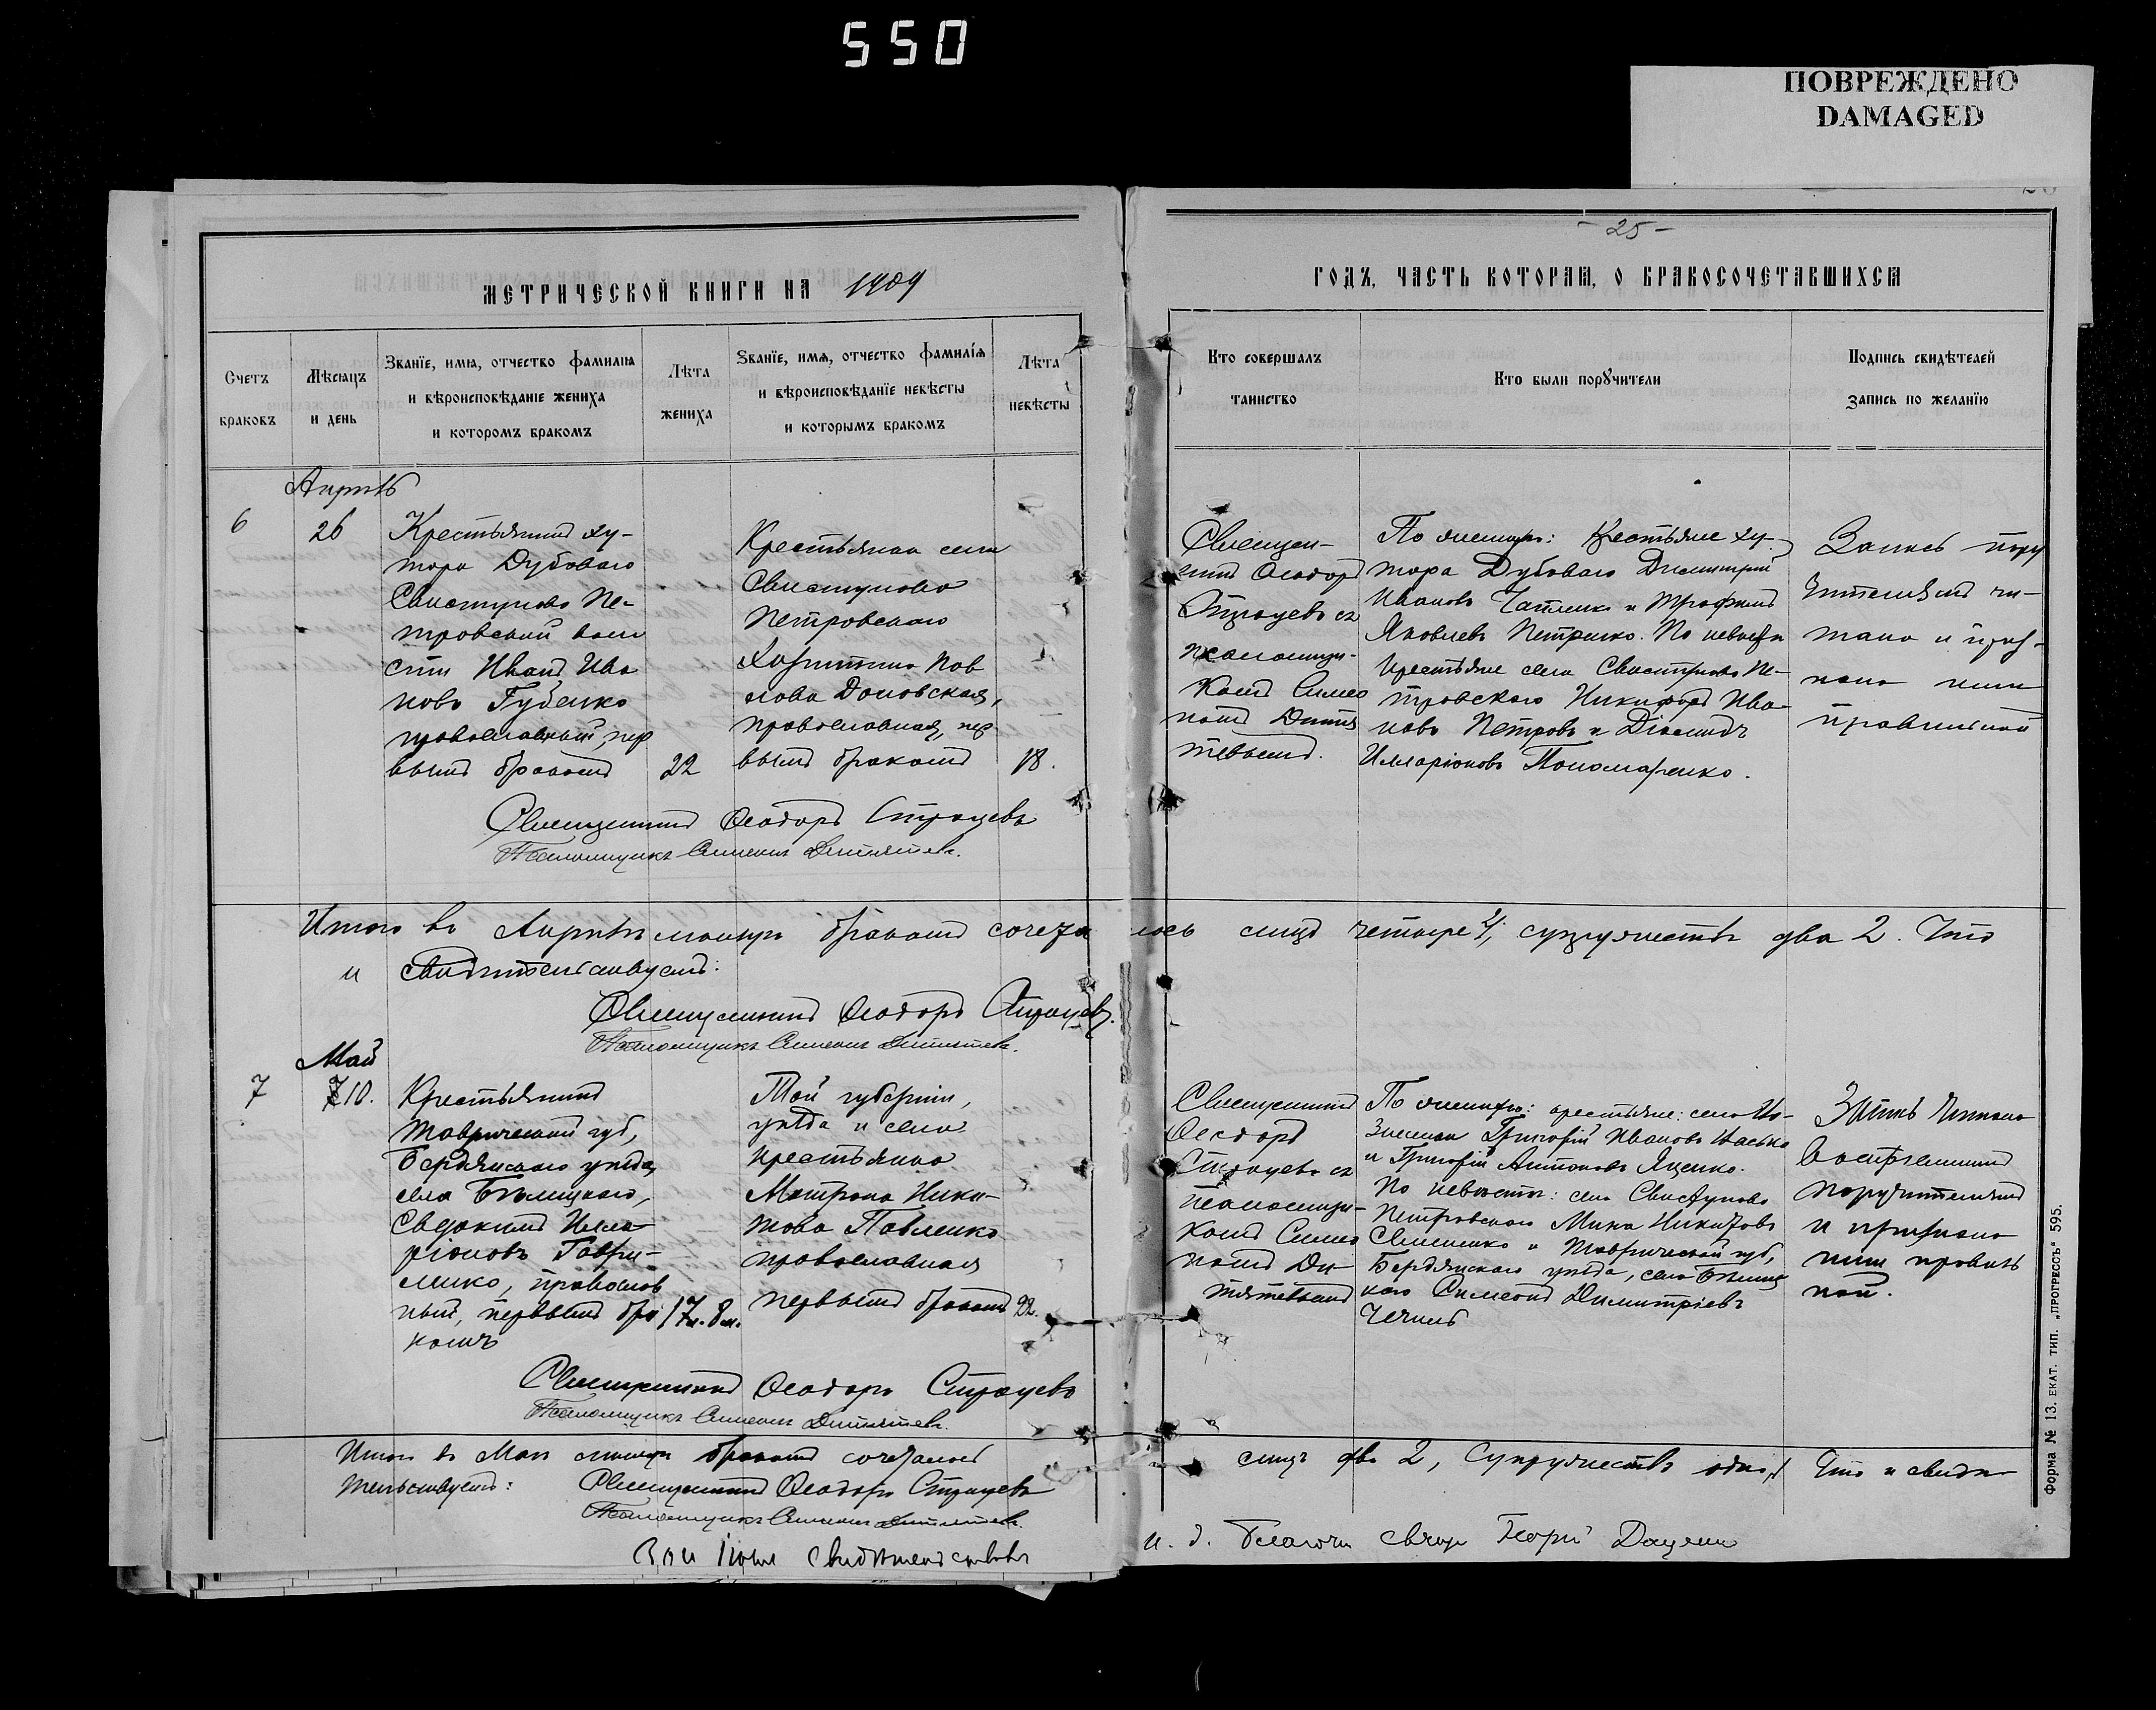 550
ПОВРЕЖДЕНО
DAMAGED
- 25 -
МЕТРИЧЕСКОЙ КНИГИ НА 1909
ГОДЪ, ЧАСТЬ КОТОРАЯ, О БРАКОСОЧЕТАВШИХСЯ
Счетъ браковъ
Мѣсяцъ и день
Званїе, имя, отчество фамилїя
и вѣроисповѣданїе жениха
и которомъ бракомъ
Лѣта жениха
Званїе, имя, отчество фамилїя
и вѣроисповѣданїе невѣсты
и которымъ бракомъ
Лѣта невѣсты
Кто совершалъ таинство
Кто были порꙋчители
Подпись свидѣтелей
запись по желанїю
Апрѣль
6
26
Крестьянинъ ху-
тора Дубоваго
Свистуново Пе-
тровской воло
сти Иванъ Ива
новъ Губенко
православный, пер
вымъ бракомъ
22
Крестьянка села
Свистуново
Петровскаго
Харитина Пав
лова Доновская,
православная, пер
вымъ бракомъ
18.
Священ-
никъ Ѳеодоръ
Страцевъ съ
псаломщи-
комъ Симео
номъ Дитя
тевымъ.
По женихѣ: Крестьяне ху-
тора Дубоваго Димитрій
Ивановъ Чапленко и Трофимъ
Яковлевъ Петренко. По невѣстѣ
крестьяне села Свистуново Пе-
тровскаго Никифоръ Ива-
новъ Петровъ и Діомидъ
Илларіоновъ Пономаренко.
Запись пору
чителямъ чи-
тана и приз-
нана ими
правильной
Священникъ Ѳеодоръ Страцевъ
Псаломщикъ Симеонъ Дитятевъ.
Итого въ Апрѣлѣ мѣсяцѣ бракомъ сочета лось лицъ четыре 4, супружествъ два 2. Что
и свидѣтельствуемъ:
Священникъ Ѳеодоръ Страцевъ.
Псаломщикъ Симеонъ Дитятевъ.
Май
7
10.
Крестьянинъ
Таврической губ,
Бердянскаго уѣзда,
села Бѣлицкаго,
Евдокимъ Илла
ріоновъ Гаври-
ленко, православ
ный, первымъ бра
комъ
17 л. 8 м.
Той губерніи,
уѣзда и села
крестьянка
Матрона Ники-
това Павленко
православная
первымъ бракомъ
22.
Священникъ
Ѳеодоръ
Страцевъ съ
псаломщи-
комъ Симео
номъ Ди-
тятевымъ
По женихѣ: крестьяне: села
Григорій Ивановъ
и Григорій Антоновъ Яценко.
По невѣстѣ: села Свистуново
Петровскаго Мина Никитовъ
Семененко и Таврической губ,
Бердянскаго уѣзда, села Бѣлиц
каго Симеонъ Димитріевъ
читана
поручителямъ
и признана
ими правиль
ной.
Священникъ Ѳеодоръ Страцевъ
Псаломщикъ Симеонъ Дитятевъ.
Итого въ Маѣ мѣсяцѣ бракомъ сочеталось лицъ два 2, Супружествъ одно 1 Что и свидѣ-
тельствуемъ: Священникъ Ѳеодоръ Страцевъ
Псаломщикъ Симеонъ Дитятевъ.
Іюня свидѣтельствовалъ
и. д.
Форма № 13. ЕКАТ. ТИП. „ПРОГРЕССЪ“ 595.